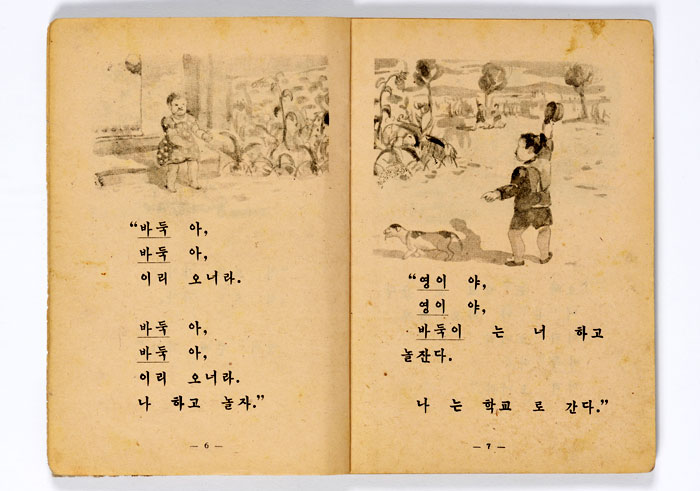 “바둑 아,
바둑 아,
이리 오너라.
바둑 아,
바둑 아,
이리 오너라.
나 하고 놀자.”
— 6 —
“영이 야,
영이 야,
바둑이 는 너 하고
놀잔다.
나 는 학교 로 간다.”
— 7 —